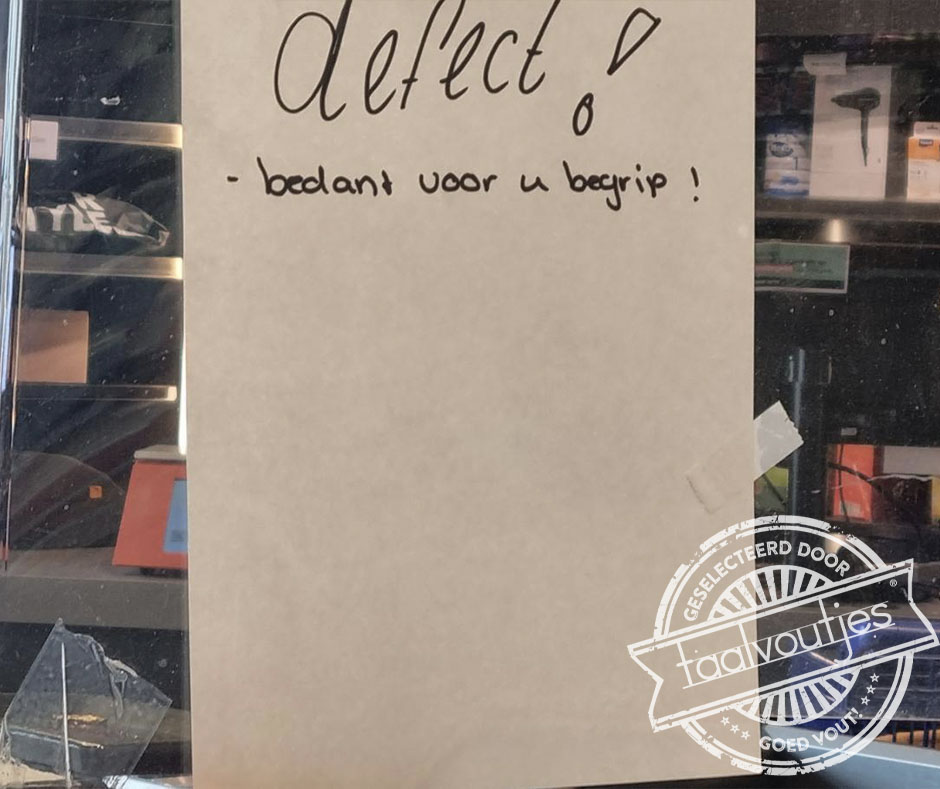 defect!
- bedant voor u begrip!
GESELECTEERD DOOR
taalvoutjes®
GOED VOUT!